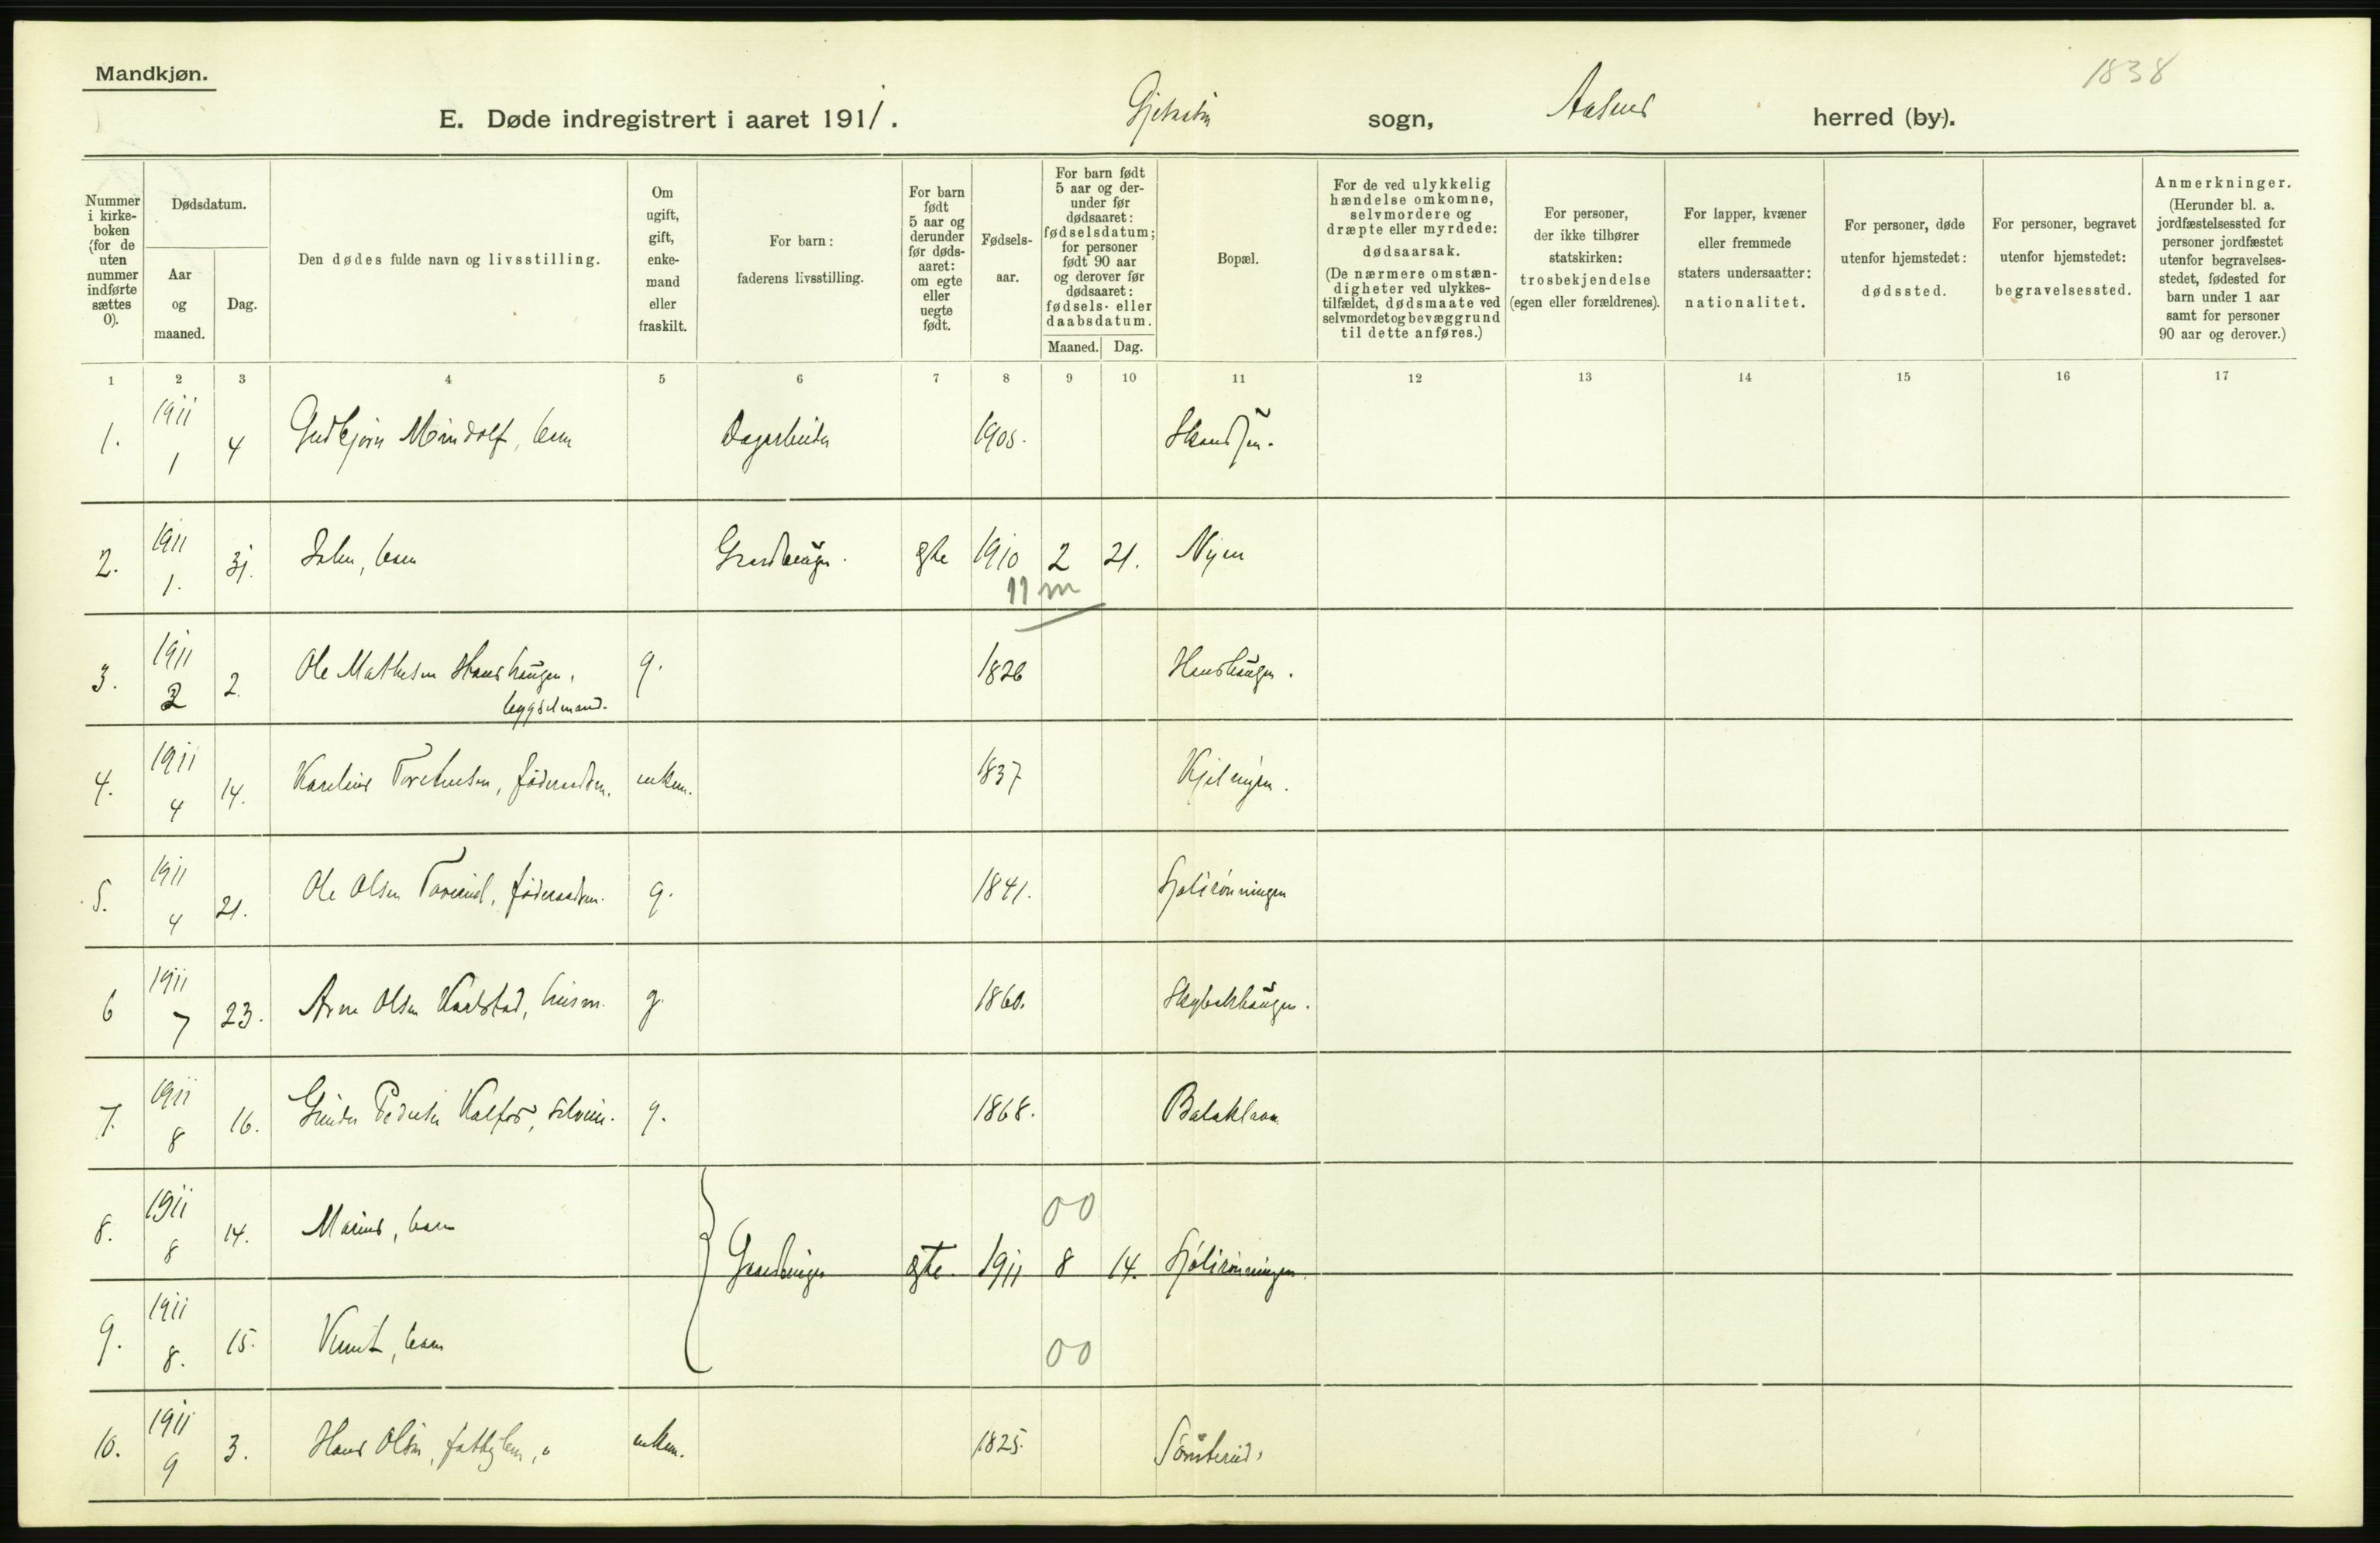 Mandkjøn.
1838
E. Døde indregistrert i aaret 1911. sogn, Aasnes herred (by).
Nummer i kirkeboken (for de uten nummer indførte sættes 0).
Dødsdatum.
Aar og maaned.
Dag.
Den dødes fulde navn og livsstilling.
Om ugift, gift, enkemand eller fraskilt.
For barn: faderens livsstilling.
For barn født 5 aar og derunder før dødsaaret: om egte eller uegte født.
Fødselsaar.
For barn født 5 aar og derunder før dødsaaret: fødselsdatum; for personer født 90 aar og derover før dødsaaret: fødsels- eller daabsdatum.
Maaned. Dag.
Bopæl.
For de ved ulykkelig hændelse omkomne, selvmordere og dræpte eller myrdede: dødsaarsak. (De nærmere omstændigheter ved ulykkestilfældet, dødsmaate ved selvmordet og bevæggrund til dette anføres.)
For personer, der ikke tilhører statskirken: trosbekjendelse (egen eller forældrenes).
For lapper, kvæner eller fremmede staters undersaatter: nationalitet.
For personer, døde utenfor hjemstedet: dødssted.
For personer, begravet utenfor hjemstedet: begravelsessted.
Anmerkninger. (Herunder bl. a. jordfæstelsessted for personer jordfæstet utenfor begravelsesstedet, fødested for barn under 1 aar samt for personer 90 aar og derover.)
1 2 3 4 5 6 7 8 9 10 11 12 13 14 15 16 17
1. 1911 1 4 Gudbjørn Mindolf, barn Dagarbeider 1905.
2. 1911 1. 31. barn Gaardbruger. egte 1910 2 21. Nyen
11 m
3. 1911 2 2. Ole Mathesen Hanshaugen, bygselmand. g. 1826 Hanshaugen.
4. 1911 4 14. føderaadsm. enkem. 1837
5. 1911 4 21. Ole Olsen føderaadsm. g. 1841. Sjølirønningen
6 1911 7 23. Arne Olsen husm. g. 1860.
7. 1911 8 16. Pedersen selveier. g. 1868. Balaklava
8. 1911 8 14. Marius, barn 00
Gaardbruger egte. 1911 8 14. Sjølirønningen.
9. 1911 8. 15. Knut, barn 00
10. 1911 9 3. Hans Olsen, enkem. 1825.